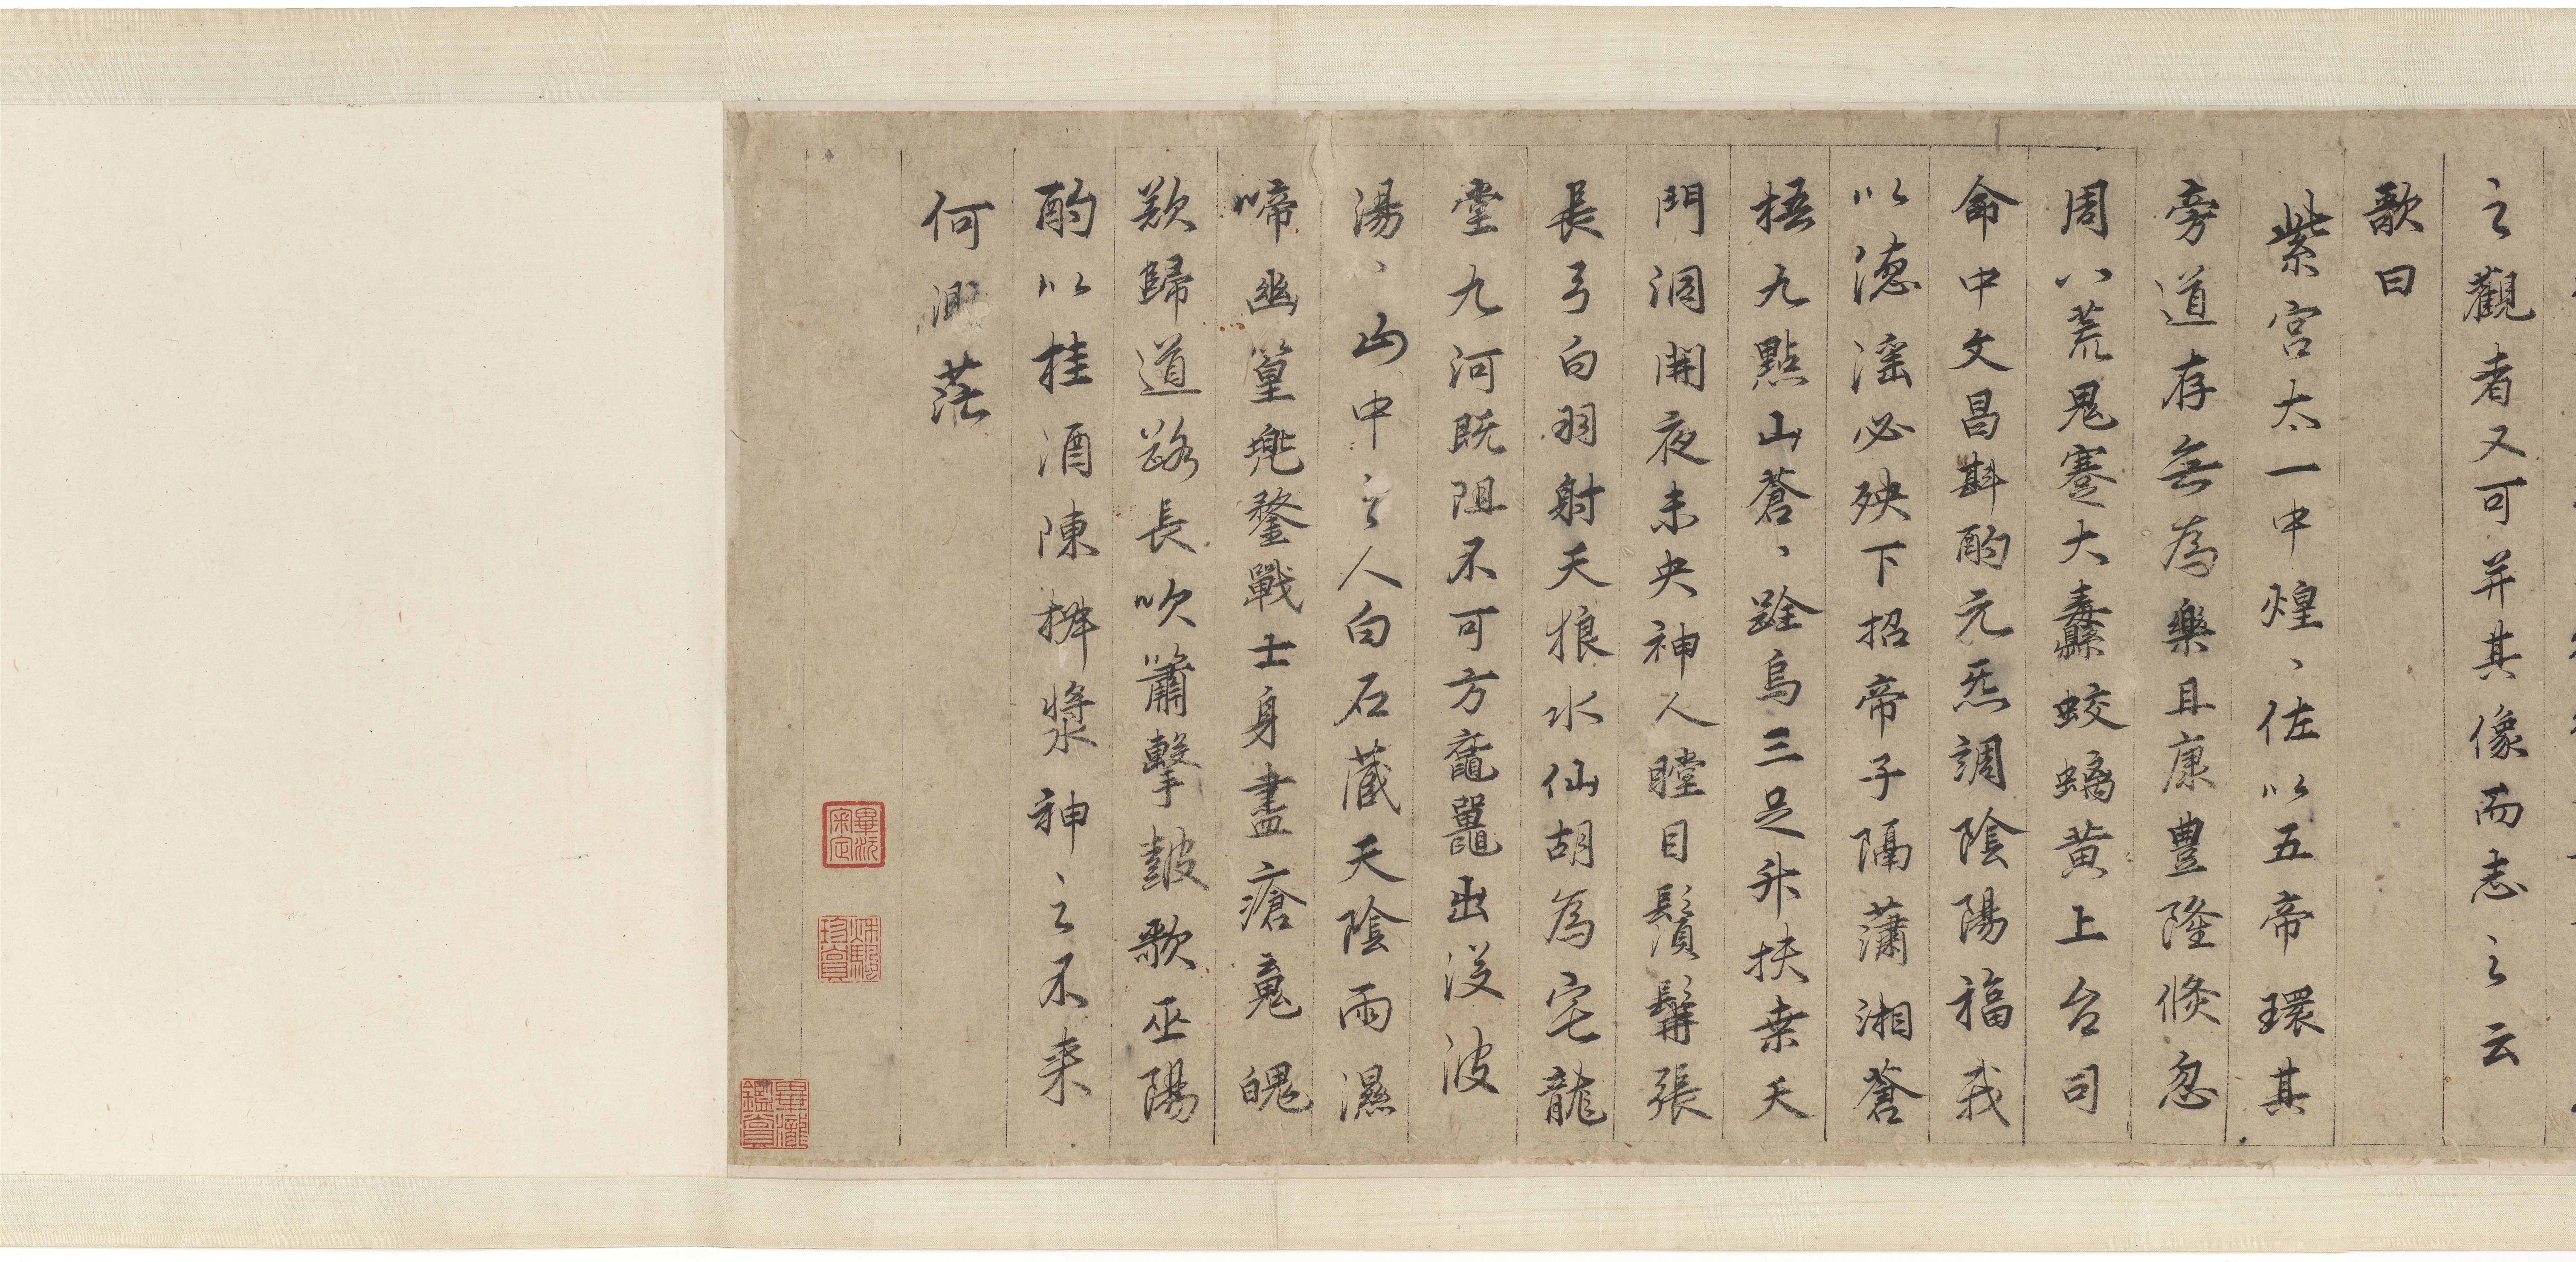 之觀者又可并其像而志之云
歌曰
紫宮太一中煌〻佐以五帝環其
旁道存無為樂且康豊隆倏忽
周八荒鬼蹇大纛蛟螭黄上台司
命中文昌斟酌元炁調陰陽福我
以德滛必殃下招帝子隔蕭湘蒼
梧九點山蒼〻踆烏三足升扶桒天
門洞開夜未央神人瞠目鬚髯張
長弓白羽射天狼水仙胡為宅龍
堂九河既阻不可方黿鼉出没波
湯〻山中之人白石藏天陰雨濕
啼幽篁兠鍪戰士身盡瘡䰟魄
歎歸道路長吹簫擊皷歌巫陽
酌以桂酒陳椒漿神之不来
何渺茫
畢沅審定
秋颿珍賞
畢瀧鑑賞